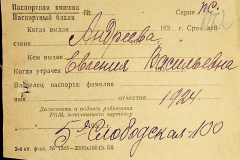 Паспортная книжка
Паспортный бланк № Серия ПС.
Когда выдан 193 г. Срок дей-
ствия Андреева
Кем выдан Евгения Васильевна
Когда утрачен
Владелец паспорта: фамилия
имя отчество 1924
Должность и подпись работника
РКМ, заполнившего карточку
5я Слободская-100